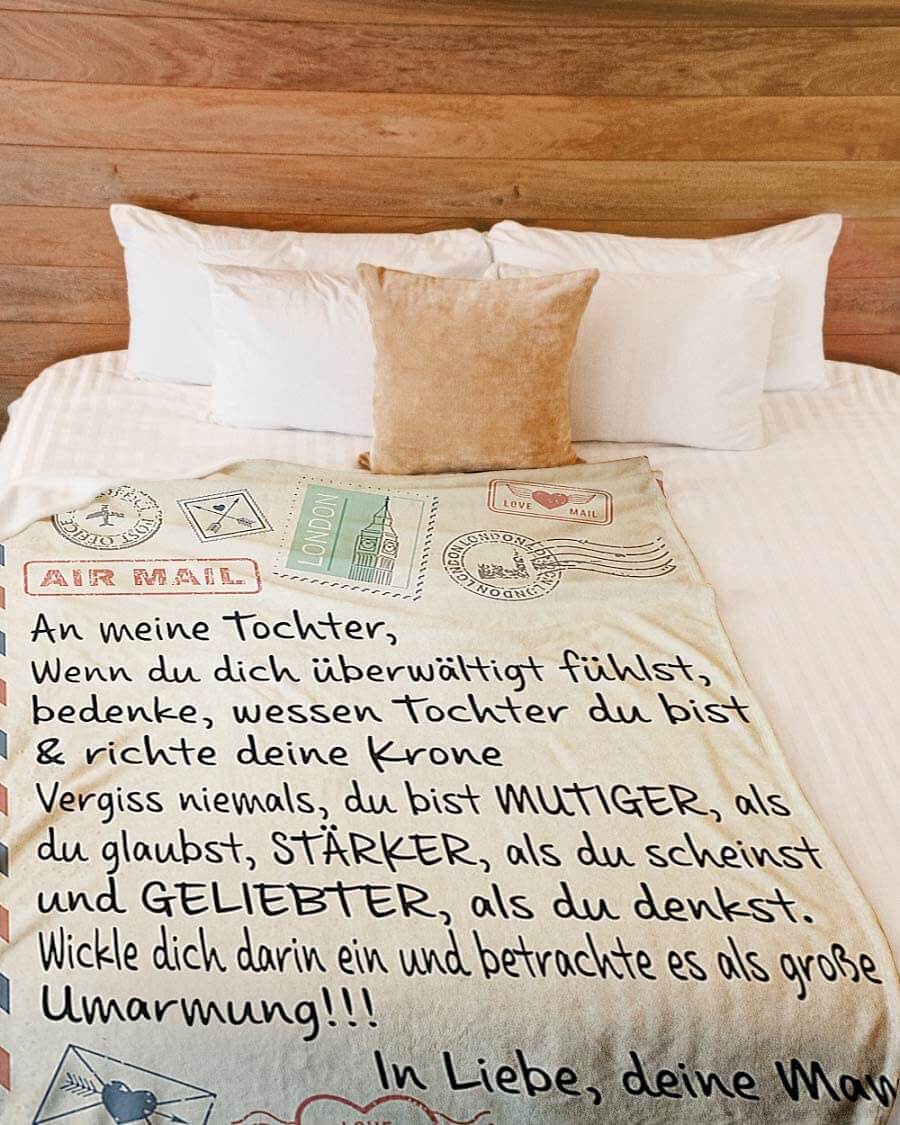 POST OFFICE
LONDON
LOVE MAIL
LONDON LONDON
LONDON
AIR MAIL
An meine Tochter,
Wenn du dich überwältigt fühlst,
bedenke, wessen Tochter du bist
& richte deine Krone
Vergiss niemals, du bist MUTIGER, als
du glaubst, STÄRKER, als du scheinst
und GELIEBTER, als du denkst.
Wickle dich darin ein und betrachte es als große
Umarmung!!!
In Liebe, deine Mam
LOVE